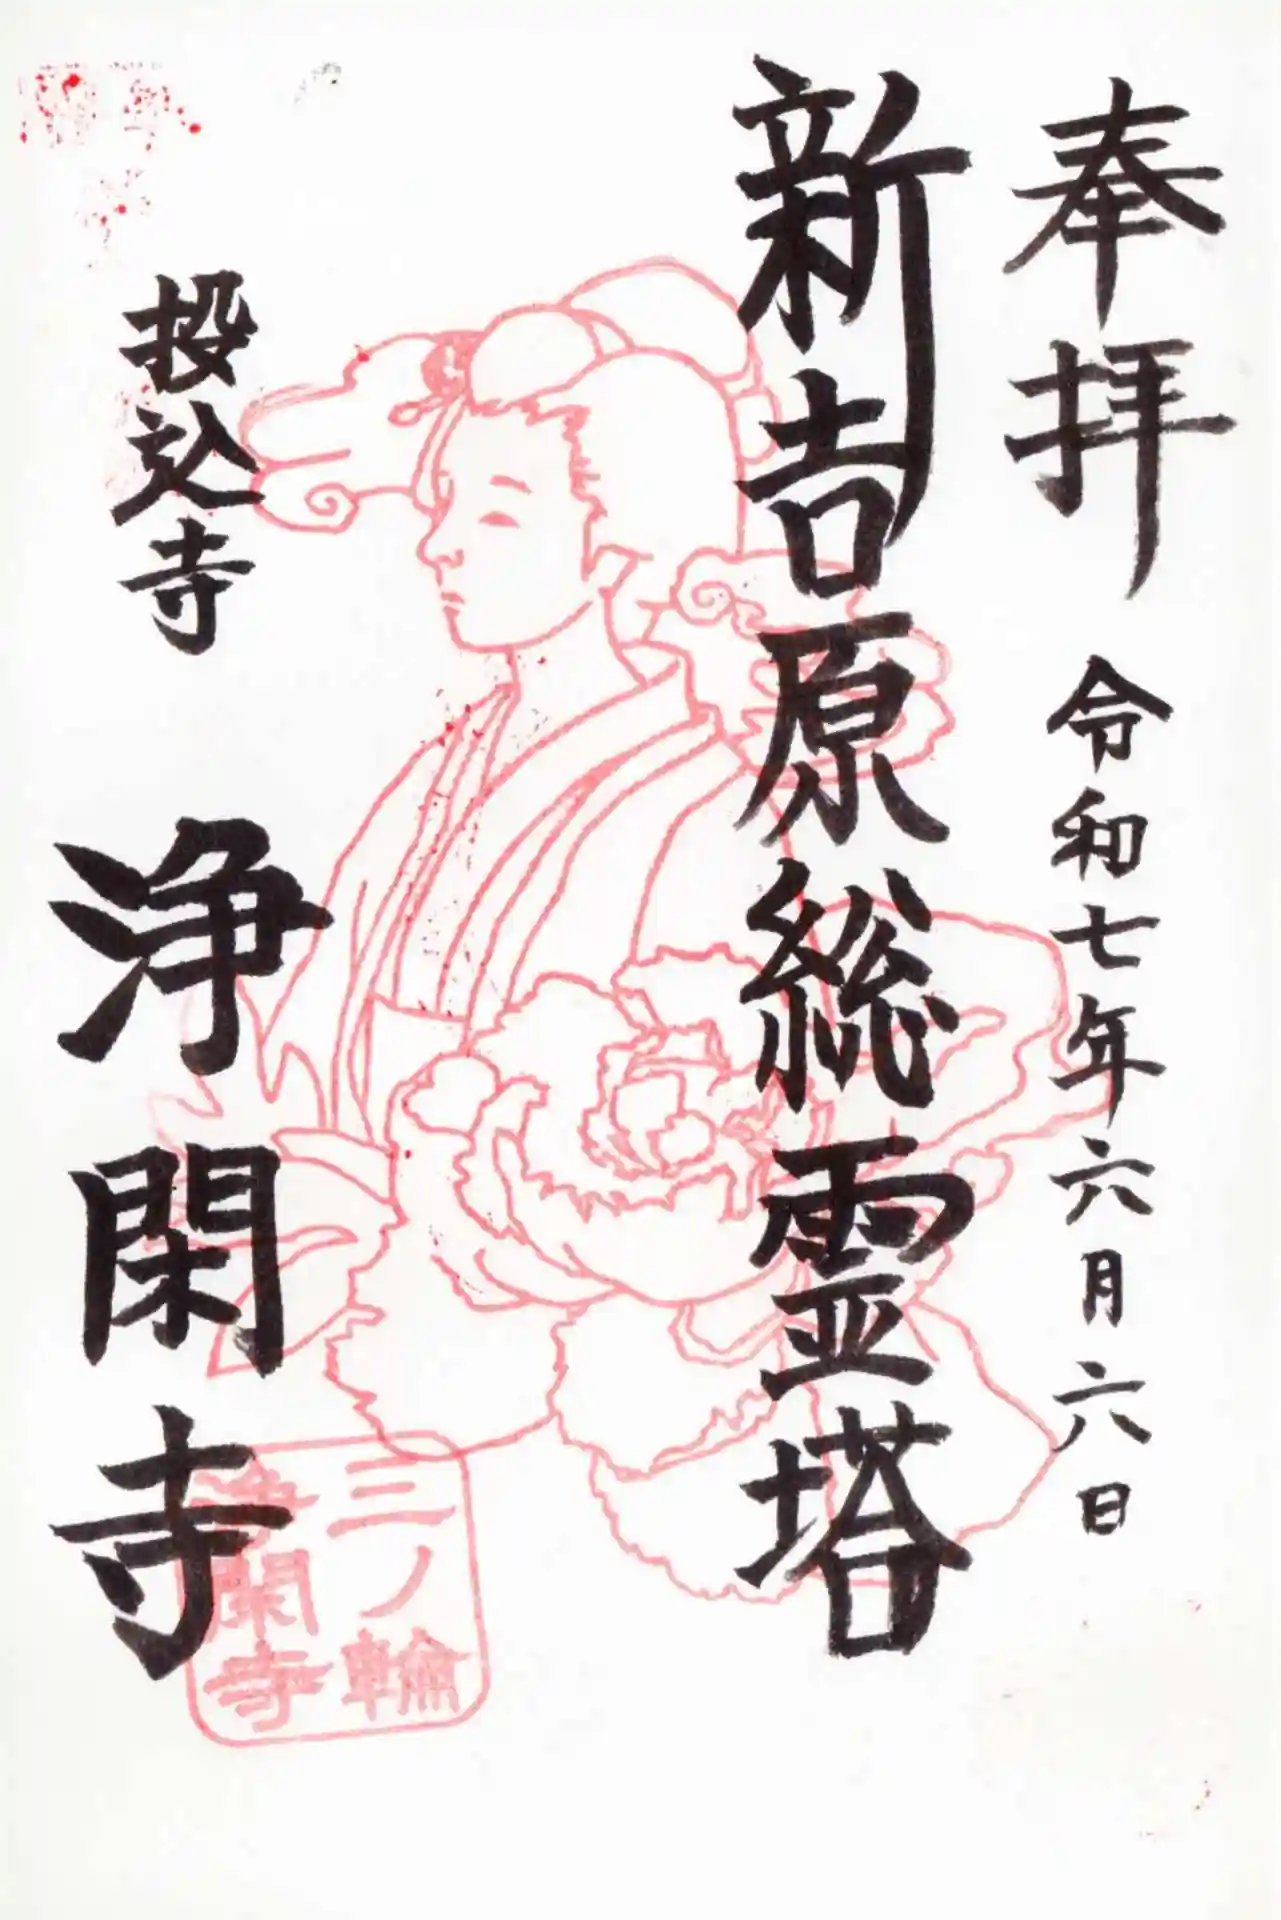 奉拝 令和七年六月六日
新吉原総霊塔
投込寺
浄閑寺
三ノ輪
浄閑寺